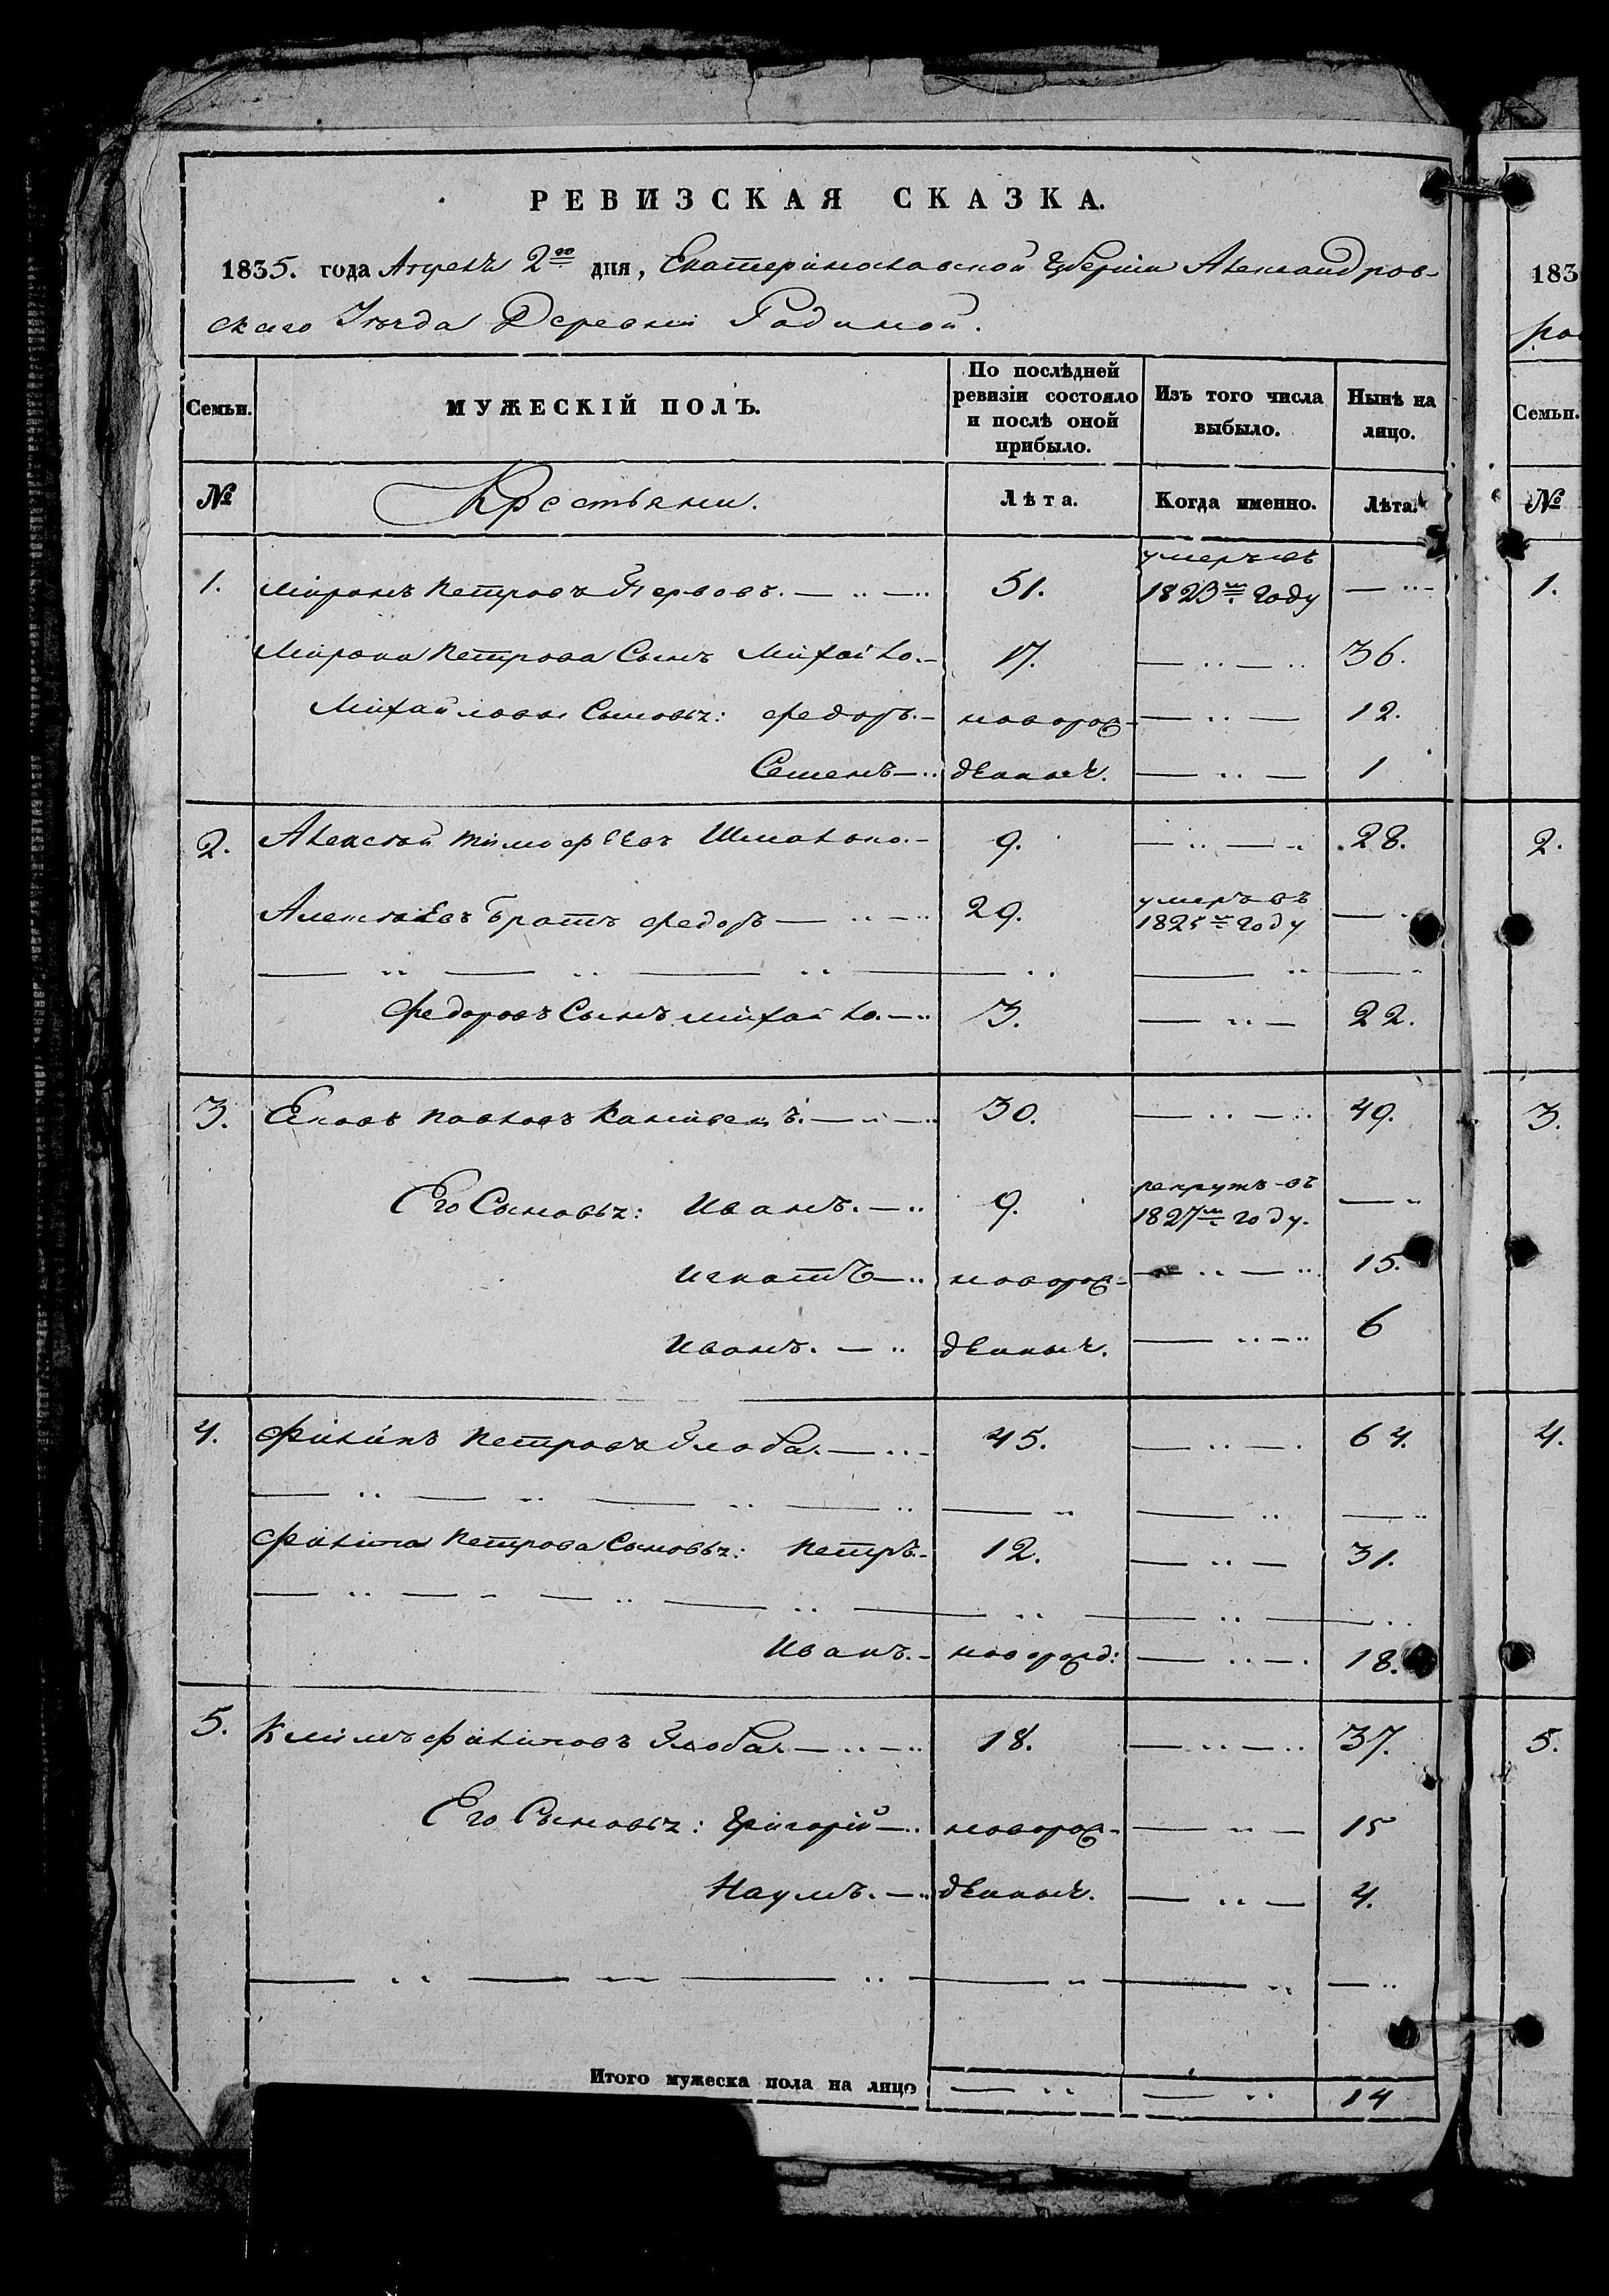 РЕВИЗСКАЯ СКАЗКА.
1835. года Апреля 2го дня, Екатеринославской Губернии Александров-
скаго Уезда Деревни Радиной.
Семьи. МУЖЕСКІЙ ПОЛЪ. По послѣдней ревизіи состояло и послѣ оной прибыло. Изъ того числа выбыло. Нынѣ на лицо.
№ Крестьяни. Лѣта. Когда именно. Лѣта.
1. Миронъ Петровъ 51. умеръ въ 1823м году
Мирона Петрова Сынъ Михайло. 17. 36.
Михайловы Сыновьь: Федоръ. новорож- 12.
Семенъ денныъ. 1
2. Алексей Тимофеевъ Шматко. 9. 28.
Алексеевъ Братъ Федоръ 29. умеръ въ 1825м году
Федоровъ Сынъ Михайло. 3. 22.
3. Ековъ Павловъ 30. 49.
Его Сыновьь: Иванъ. 9. рекрутъ въ 1827м году.
Игнатъ новорож- 15.
Иванъ. денныъ. 6
4. Филипъ Петровъ Глоба. 45. 64.
Филипа Петрова Сыновьь: Петръ. 12. 31.
Иванъ. новорожд: 18.
5. Климъ Филиповъ Глоба. 18. 37.
Его Сыновьь: Григорій новорож- 15
Наумъ. денныъ. 4.
Итого мужеска пола на лицо 14
183
Семьи.
№
1.
2.
3.
4.
5.